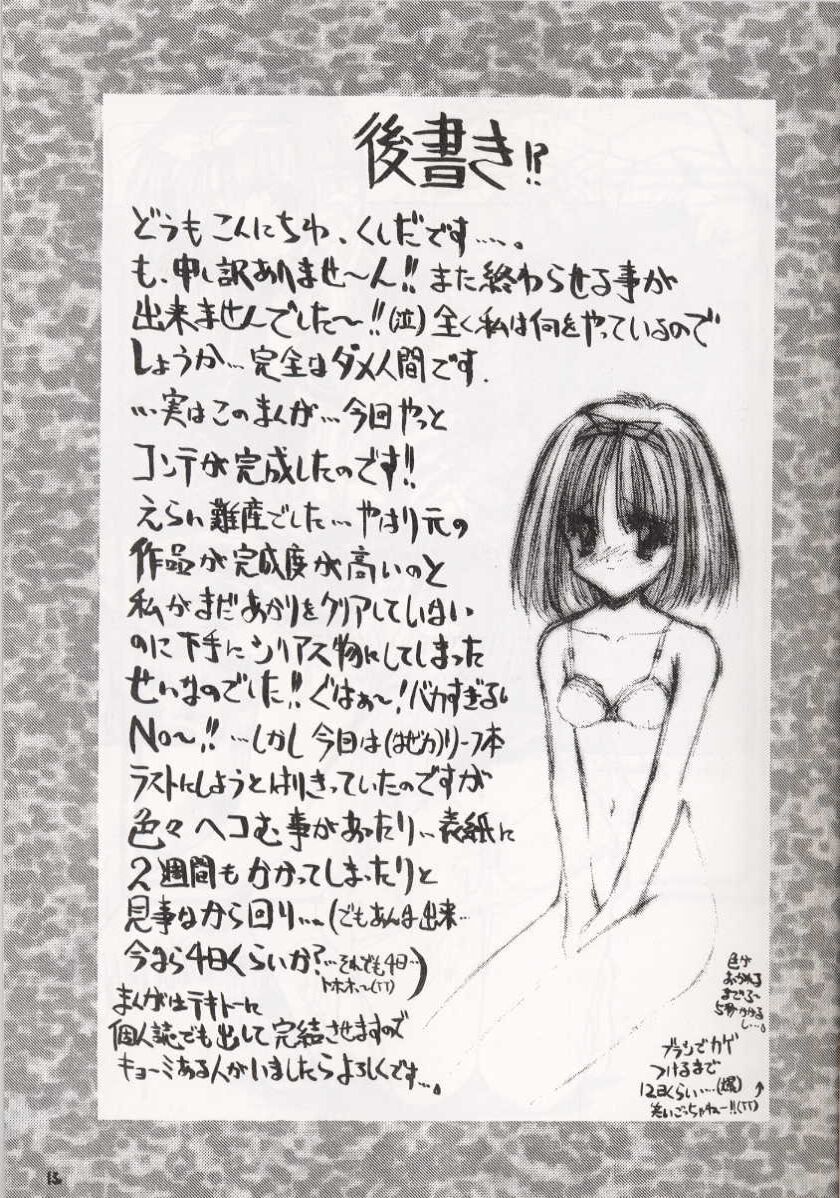 後書き!?
どうもこんにちわ、くしだです….。
も、申し訳ありませ〜ん!! また終わらせる事が
出来ませんでした〜!!(泣)全く私は何をやっているので
しょうか…完全なダメ人間です.
…実はこのまんが…今回やっと
コンテが完成したのです!!
えらい難産でした…やはり元の
作品が完成度が高いのと
私がまだあかりをクリアしていない
のに下手にシリアス物にしてしまった
せいなのでした!!ぐはぁ〜!バカすぎるし
No〜!! …しかし今日は(はぜか)リーフ本
ラストにしようとはりきっていたのですが
色々ヘコむ事があったり…表紙に
2週間もかかってしまったりと
見事なから回り…(でもあんな出来…
今なら4日くらいか?…それでも4日…
トホホ〜(TT))
まんがはテキトーに
個人誌でも出して完結させますので
キョーミある人がいましたらよろしくです…。
ブラシでカゲ
つけるまで
12日くらい…(爆)
13